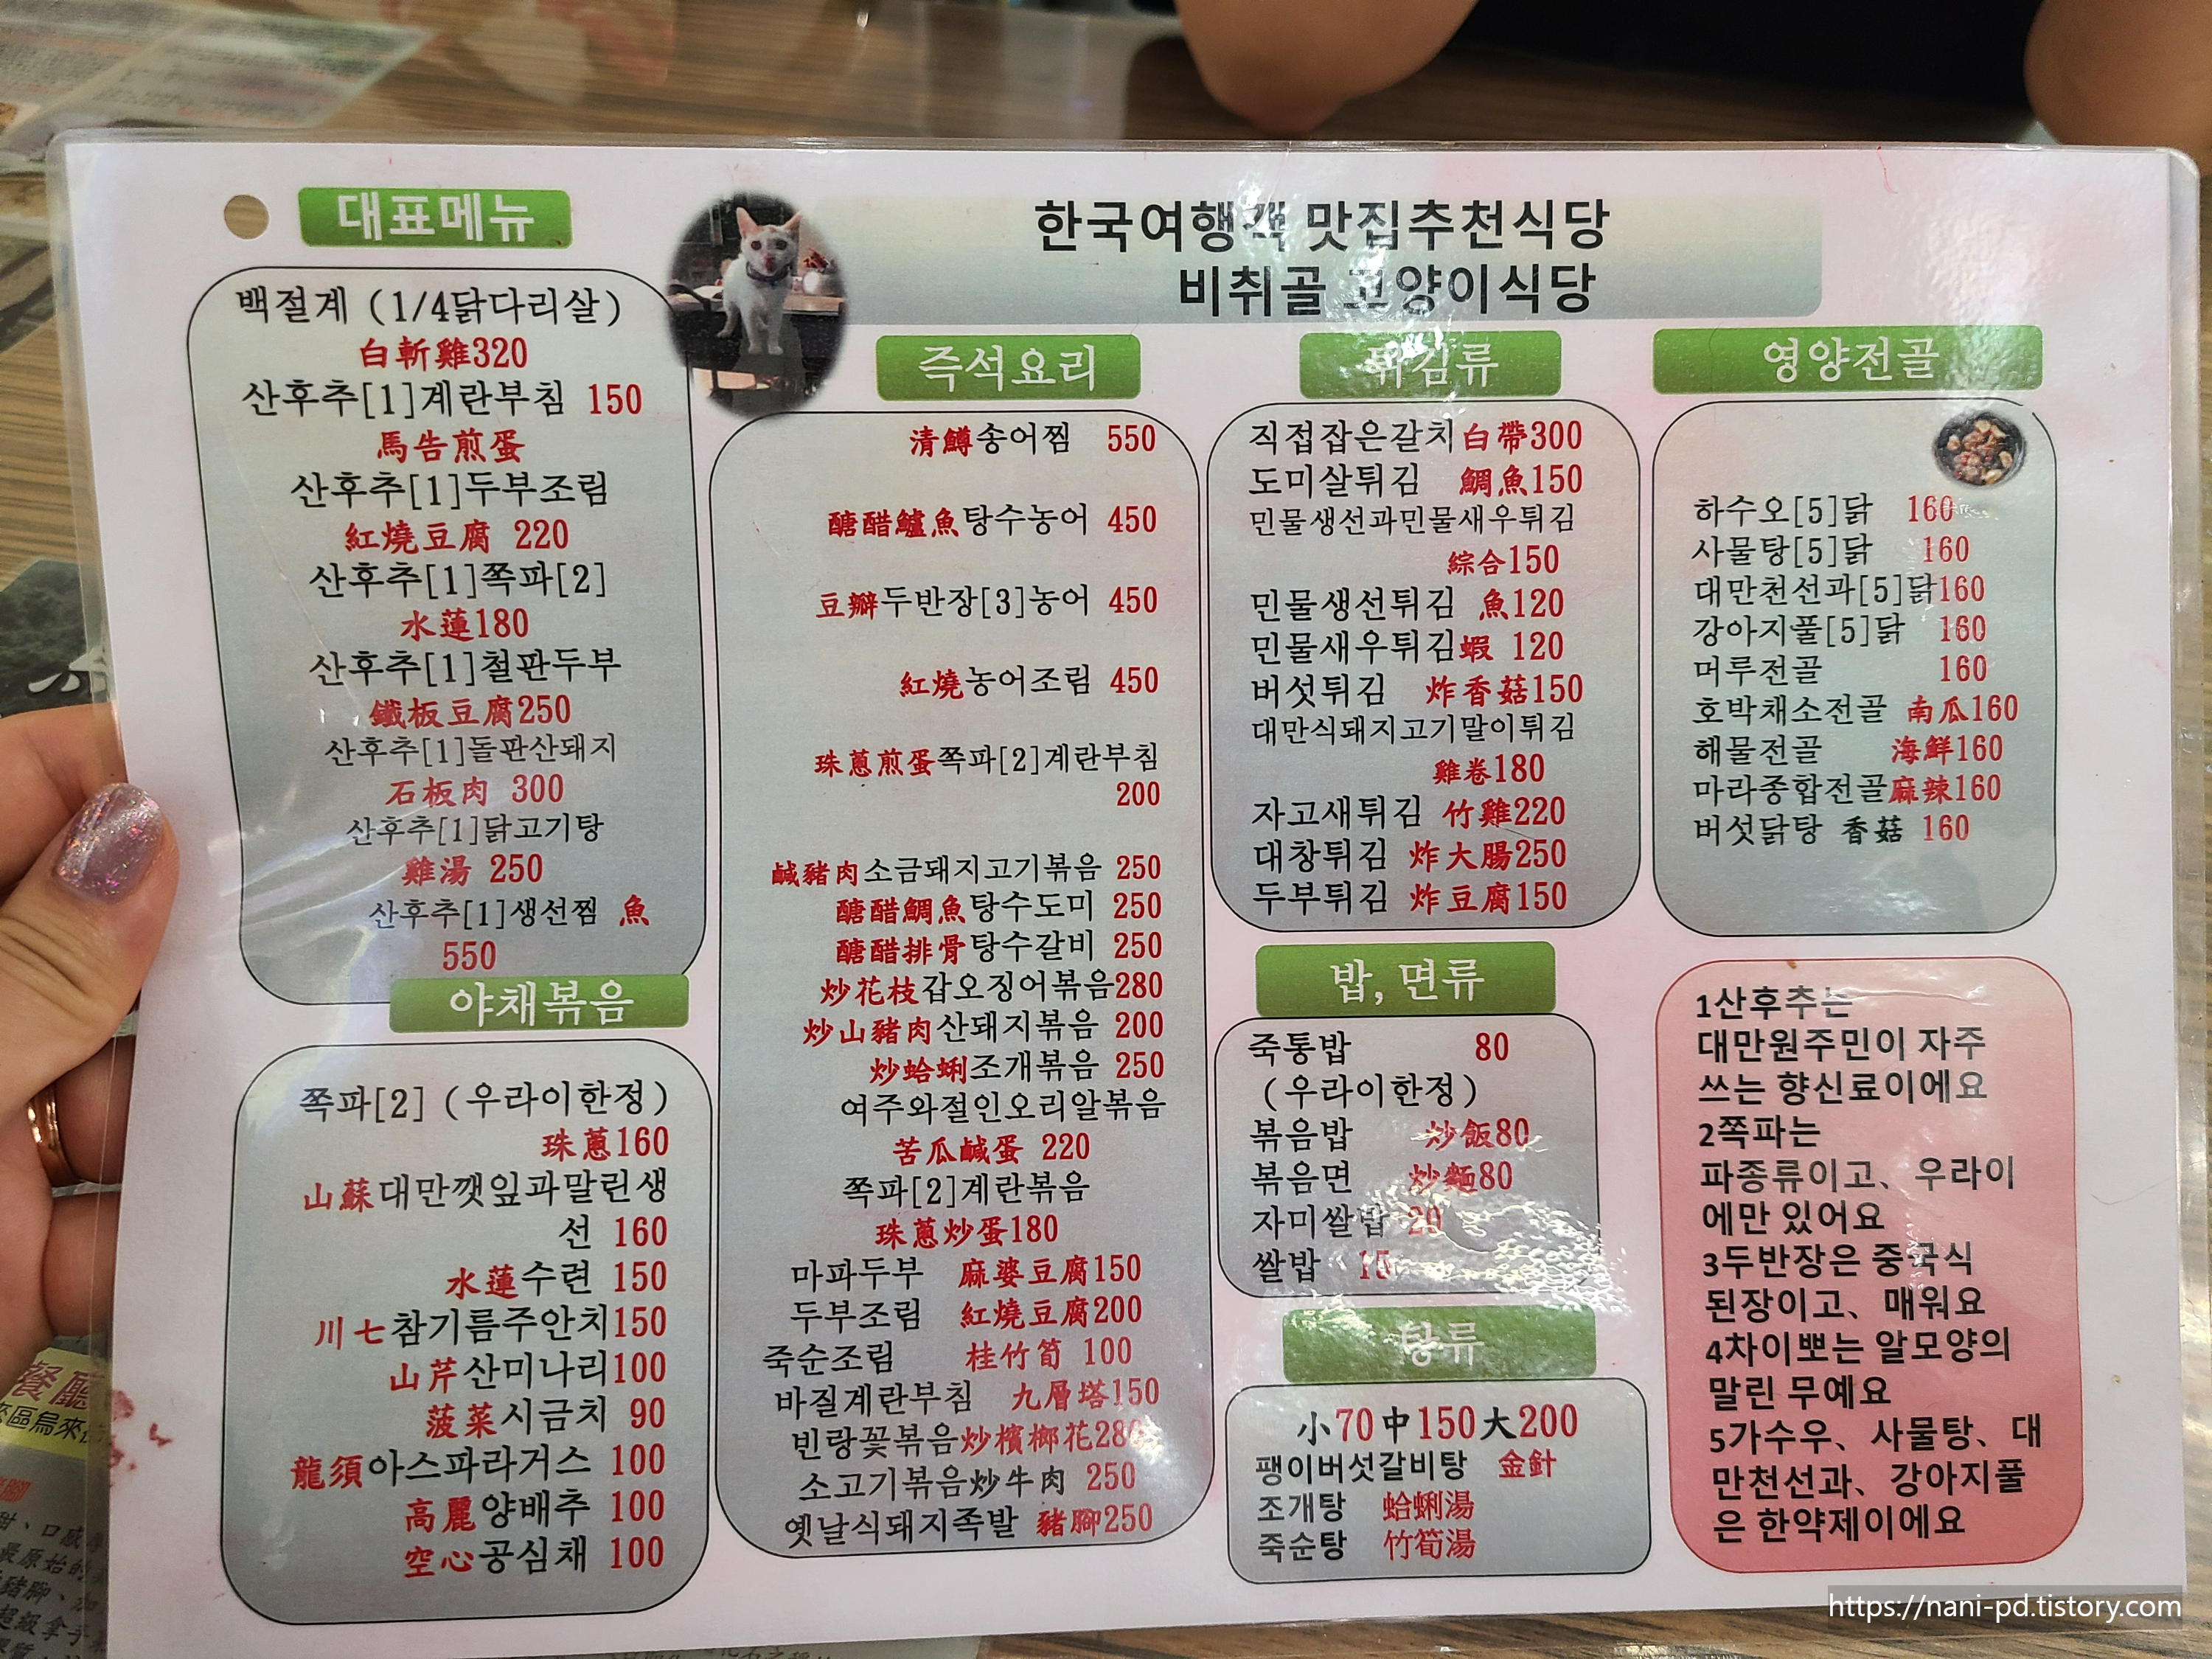 대표메뉴
백절계 (1/4닭다리살)
白斬雞320
산후추[1]계란부침 150
馬告煎蛋
산후추[1]두부조림
紅燒豆腐 220
산후추[1]쪽파[2]
水蓮180
산후추[1]철판두부
鐵板豆腐250
산후추[1]돌판산돼지
石板肉 300
산후추[1]닭고기탕
雞湯 250
산후추[1]생선찜 魚
550
야채볶음
쪽파[2] (우라이한정)
珠蔥160
山蘇대만깻잎과말린생
선 160
水蓮수련 150
川七참기름주안치150
山芹산미나리100
菠菜시금치 90
龍須아스파라거스 100
高麗양배추 100
空心공심채 100
한국여행객 맛집추천식당
비취골 고양이식당
즉석요리
清鱒송어찜 550
醣醋鱸魚탕수농어 450
豆瓣두반장[3]농어 450
紅燒농어조림 450
珠蔥煎蛋쪽파[2]계란부침
200
鹹豬肉소금돼지고기볶음 250
醣醋鯛魚탕수도미 250
醣醋排骨탕수갈비 250
炒花枝갑오징어볶음280
炒山豬肉산돼지볶음 200
炒蛤蜊조개볶음 250
여주와절인오리알볶음
苦瓜鹹蛋 220
쪽파[2]계란볶음
珠蔥炒蛋180
마파두부 麻婆豆腐150
두부조림 紅燒豆腐200
죽순조림 桂竹筍 100
바질계란부침 九層塔150
빈랑꽃볶음炒檳榔花280
소고기볶음炒牛肉 250
옛날식돼지족발 豬腳250
튀김류
직접잡은갈치白帶300
도미살튀김 鯛魚150
민물생선과민물새우튀김
綜合150
민물생선튀김 魚120
민물새우튀김蝦 120
버섯튀김 炸香菇150
대만식돼지고기말이튀김
雞卷180
자고새튀김 竹雞220
대창튀김 炸大腸250
두부튀김 炸豆腐150
밥, 면류
죽통밥 80
(우라이한정)
볶음밥 炒飯80
볶음면 炒麵80
자미쌀밥 20
쌀밥 15
탕류
小70中150大200
팽이버섯갈비탕 金針
조개탕 蛤蜊湯
죽순탕 竹筍湯
영양전골
하수오[5]닭 160
사물탕[5]닭 160
대만천선과[5]닭160
강아지풀[5]닭 160
머루전골 160
호박채소전골 南瓜160
해물전골 海鮮160
마라종합전골麻辣160
버섯닭탕 香菇 160
1산후추는
대만원주민이 자주
쓰는 향신료이에요
2쪽파는
파종류이고、우라이
에만 있어요
3두반장은 중국식
된장이고、매워요
4차이뽀는 알모양의
말린 무예요
5가수우、사물탕、대
만천선과、강아지풀
은 한약제이에요
https://nani-pd.tistory.com